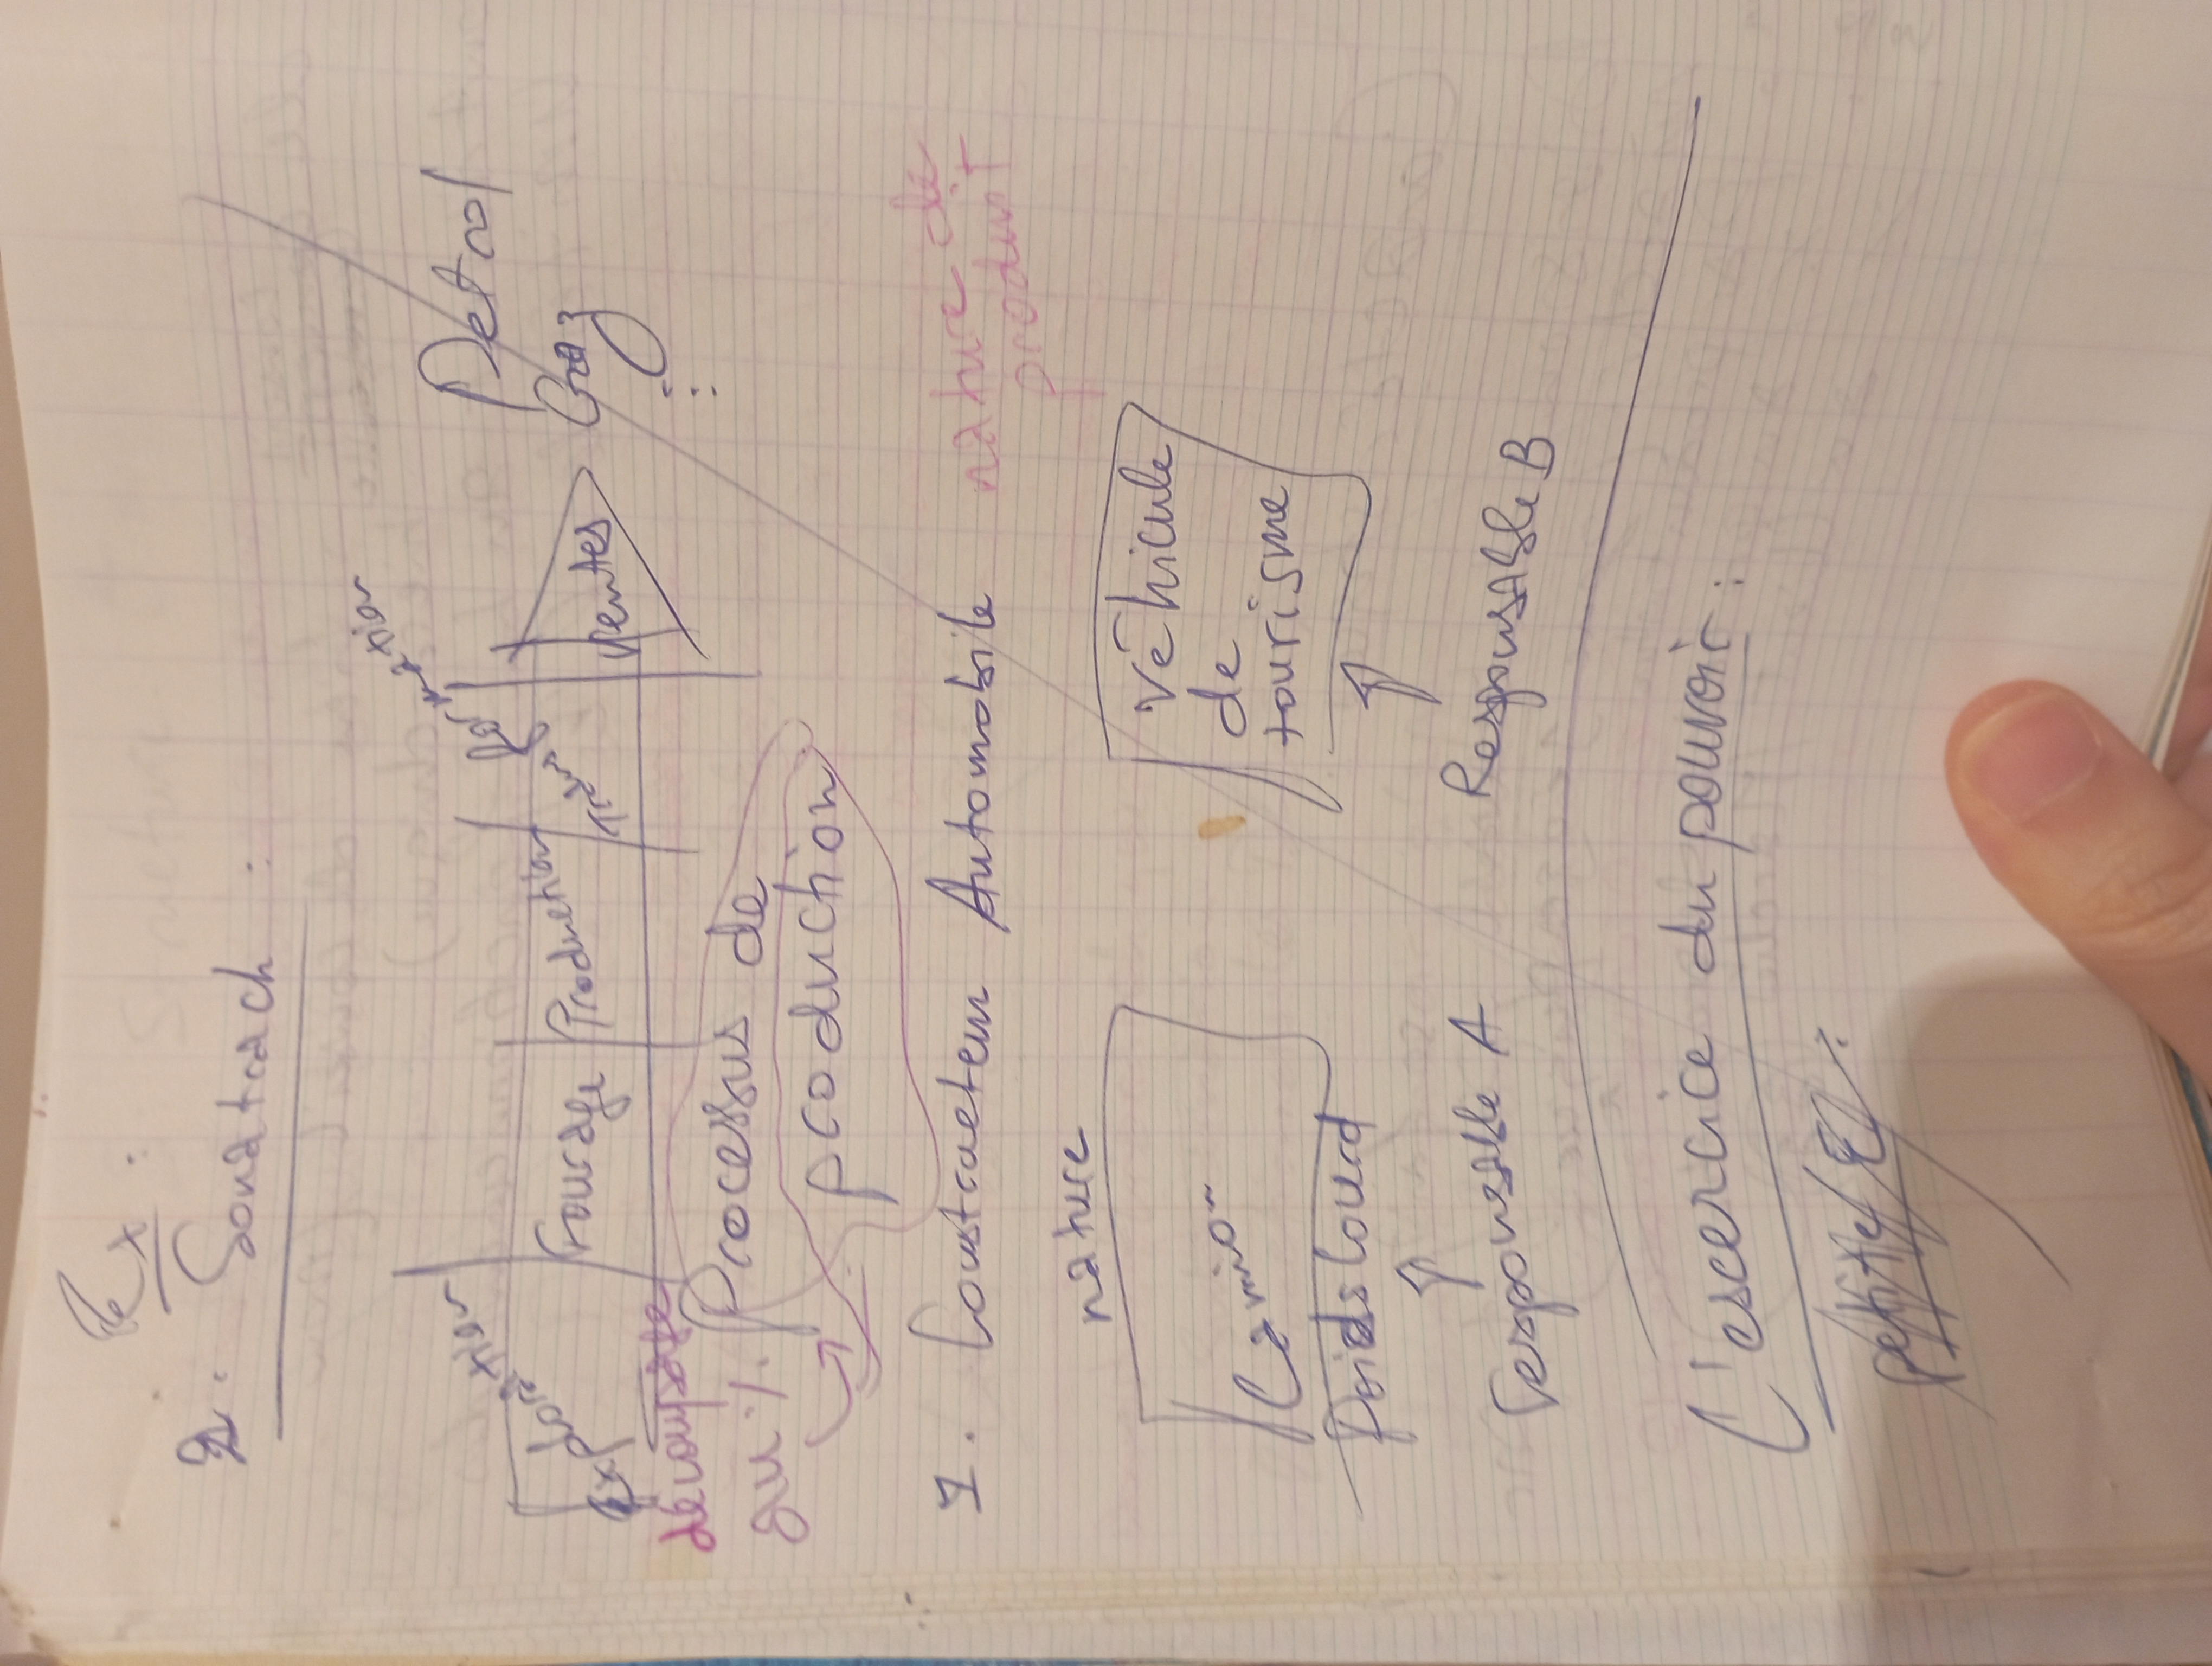 Ex :
2. Sonatrach :
Exploration
Fourage
Production
Transformation
Ventes
Petrol
Gaz
⋮
découpage
au ٪.
Processus de
production
1. Constructeur Automobile
nature de
produit
nature
Camion
Poids lourd
responsable A
Véhicule
de
tourisme
Responsable B
L'escercice du pouvoir :
petite E :